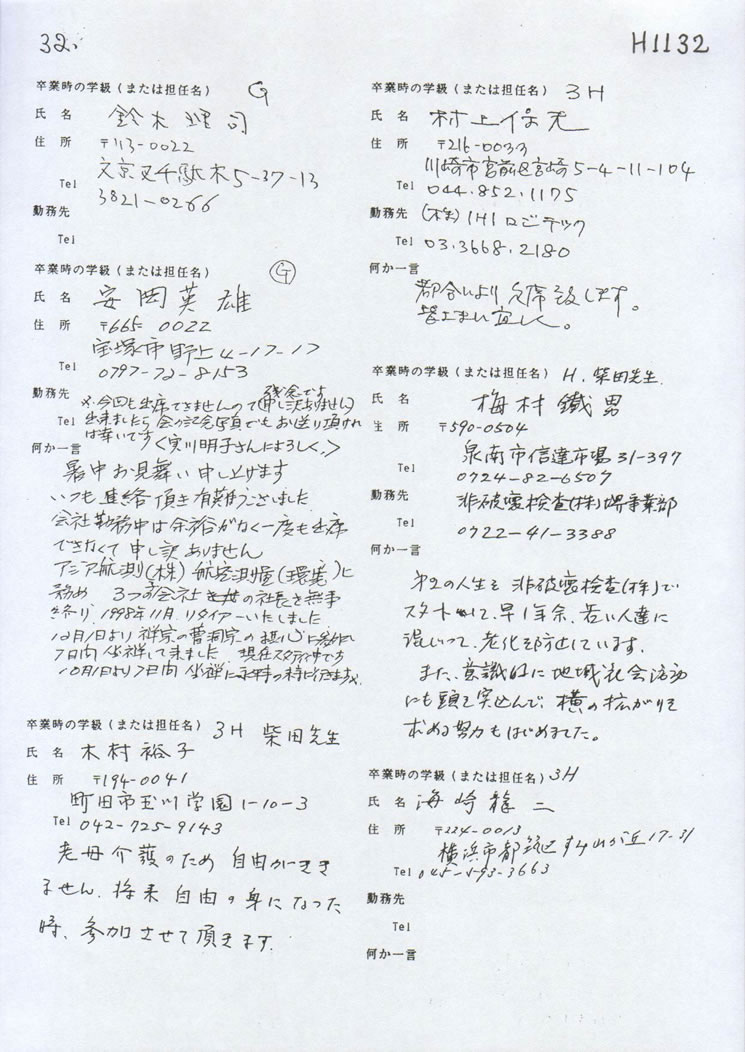 32.
H1132
卒業時の学級(または担任名) G
氏 名 鈴木理司
住 所 〒113-0022
文京区千駄木5-37-13
Tel 3821-0266
勤務先
Tel
卒業時の学級(または担任名) G
氏 名 安岡英雄
住 所 〒665 0022
宝塚市野上4-17-17
Tel 0797-72-8153
勤務先
※今回も出席できませんので(申し訳ありません)
残念です
Tel 出来ましたら会の記念写真でもお送り頂ければ幸いです
<実川明子さんによろしく。>
何か一言
暑中お見舞い申し上げます
いつも連絡頂き有難うございました
会社勤務中は余裕がなく一度も出席
できなくて申し訳ありません
アジア航測(株) 航空測量(環境)に
務め 3つの子会社の社長を無事
終り、1998年11月リタイアーいたしました
7日内坐禅して来ました。現在スタディ中です
卒業時の学級(または担任名) 3H 柴田先生
氏 名 木村裕子
住 所 〒194-0041
町田市玉川学園1-10-3
Tel 042-725-9143
老母介護のため 自由がきき
ません。将来 自由の身になった
時、参加させて頂きます。
卒業時の学級(または担任名) 3H
氏 名 村上
住 所 〒216-0033
川崎市宮前区宮崎5-4-11-104
Tel 044.852.1175
勤務先 (株)IHIロジテック
Tel 03.3668.2180
何か一言
都合により欠席致します。
皆さまに宜しく。
卒業時の学級(または担任名) H. 柴田先生
氏 名 梅村鐵男
住 所 〒590-0504
泉南市信達市場31-397
Tel 0724-82-6507
勤務先 非破壊検査(株)堺事業部
Tel 0722-41-3388
何か一言
第2の人生を非破壊検査(株)で
スタートして、早1年余、若い人達に
混じって、老化を防止しています。
また、意識的に地域社会活動
にも頭を突込んで、横の拡がりを
求める努力もはじめました。
卒業時の学級(または担任名) 3H
氏 名 海崎龍二
住 所 〒224-0013
横浜市都筑区すみれが丘17-31
Tel 045-593-3663
勤務先
Tel
何か一言